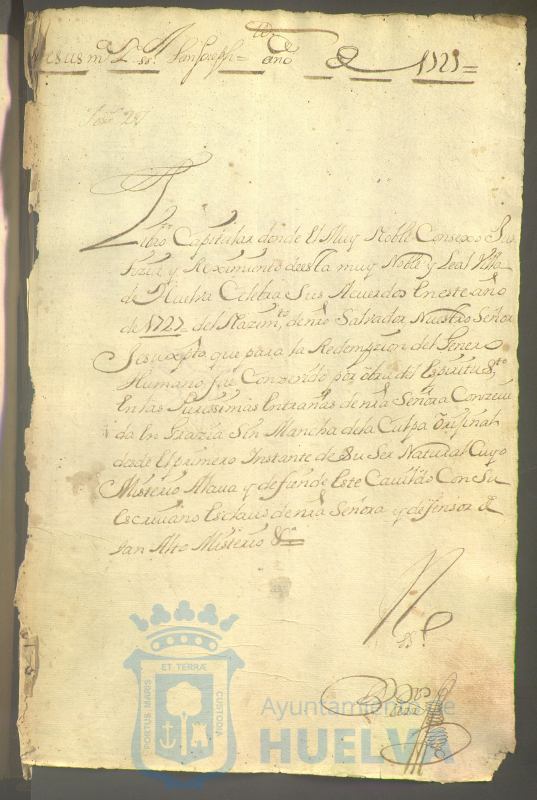 Jesus m.ª S.r Sn Joseph = año de 1727=
Libro Capitular donde El Muy Noble Consexo Jus
ticia y Reximiento desta muy Noble y Leal Villa
de Huelva Celebra Sus Acuerdos En este año
de 1727 del Nazim.to de nro Salvador Nuestro Señor
Jesuxpto que para la Redempzion del Genero
Humano fue Conzevido por obra del Espiritu S.to
En las Purissimas Entrañas de nra Señora Conzevi
da En Grazia Sin Mancha de la Culpa Original
desde El primero Instante de Su Ser Natural Cuyo
Misterio Alava y defiende Este Cavildo Con Su
escrivano Esclavo de nra Señora y defensor de
tan Alto Misterio &.a=
ET TERRÆ
PORTUS MARIS
CUSTODIA
Ayuntamiento de
HUELVA